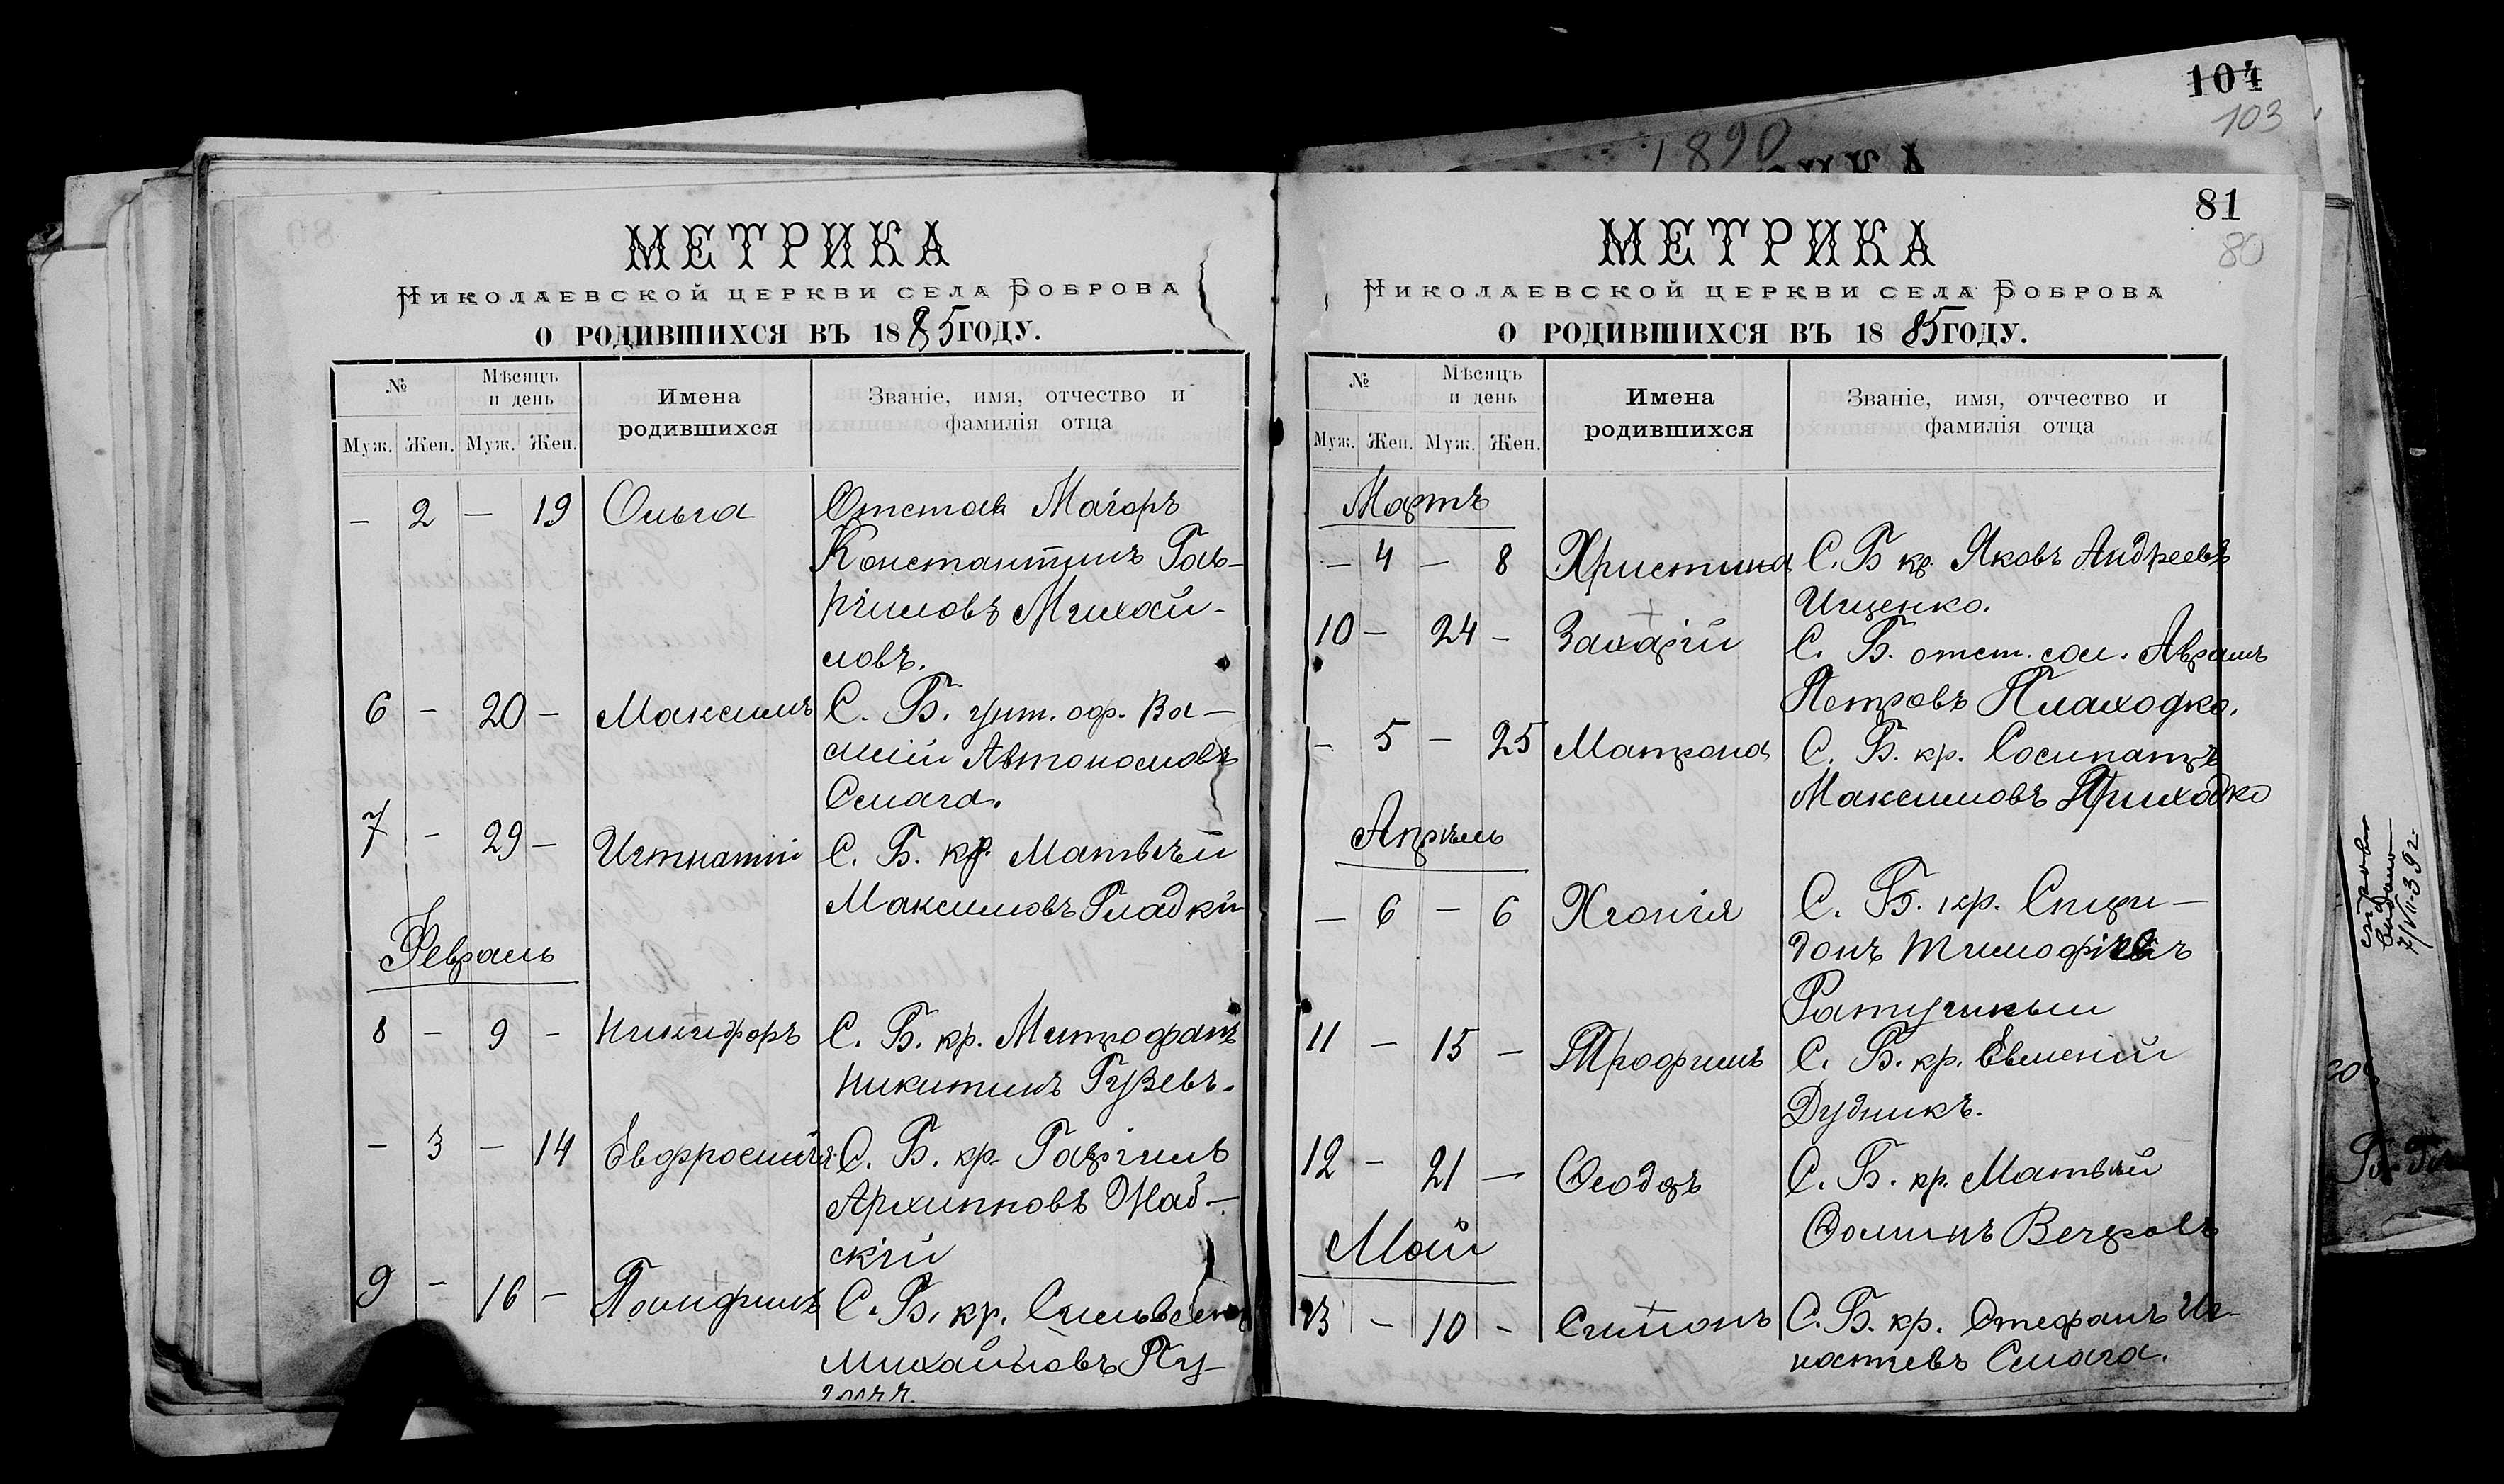 104
103
1890
МЕТРИКА
НИКОЛАЕВСКОЙ ЦЕРКВИ СЕЛА БОБРОВА
О РОДИВШИХСЯ ВЪ 1885 ГОДУ.
№ Мѣсяцъ и день Имена родившихся Званіе, имя, отчество и фамилія отца
Муж. Жен. Муж. Жен.
– 2 – 19 Ольга Отстав Маіоръ
Константинъ Гав-
ріиловъ Михай-
ловъ.
6 – 20 – Максимъ С. Б. унт. оф. Ва-
силій Автономовъ
Смага.
7 – 29 – Игнатій С. Б. кр. Матвѣй
Максимовъ Гладкій
Февраль
8 – 9 – Никифоръ С. Б. кр. Митрофанъ
Никитинъ Гузевъ.
– 3 – 14 Евфросинія С. Б. кр. Гавріилъ
Архипповъ
скій
9 – 16 – С. Б. кр. Сильвест
Михайловъ Пу-
81
80
МЕТРИКА
НИКОЛАЕВСКОЙ ЦЕРКВИ СЕЛА БОБРОВА
О РОДИВШИХСЯ ВЪ 1885 ГОДУ.
№ Мѣсяцъ и день Имена родившихся Званіе, имя, отчество и фамилія отца
Муж. Жен. Муж. Жен.
Мартъ
– 4 – 8 Христина С. Б кр. Яковъ Андреевъ
Ищенко.
10 – 24 – Захарій С. Б. отст. сол. Аврамъ
Петровъ Плаходко.
– 5 – 25 Матрона С. Б. кр. Сосипатръ
Максимовъ Приходко
Апрѣль
– 6 – 6 Хіонія С. Б. кр. Спири-
донъ Тимофѣевъ
11 – 15 – Трофимъ С. Б. кр. Евмений
Дудникъ.
12 – 21 – Ѳеодоръ С. Б. кр. Матвѣй
Ѳоминъ
Май
13 – 10 – Симонъ С. Б. кр. Стефанъ Иг-
натіевъ Смага.